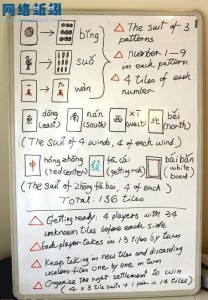 网络近郊
bǐng
suǒ
wàn
△ The suit of 3 patterns
△ number 1-9 in each pattern
△ 4 tiles of each number
東 南 西 北
dōng (east) nán (south) xī (west) běi (north)
(The suit of 4 winds, 4 of each wind)
中 發
hóng zhōng (red center) fā cái (getting rich) bái bǎn (white board)
(The suit of zhōng fā bái, 4 of each)
Total: 136 tiles
△ Getting ready: 4 players with 34
unknown tiles before each side
△ Each player takes in 13 tiles by turn
△ Keep taking in new tile and discarding
useless tiles one by one in turn
△ Organize the right settlement to win
(4 x 3 tile suits + 1 pair = 14 tiles)